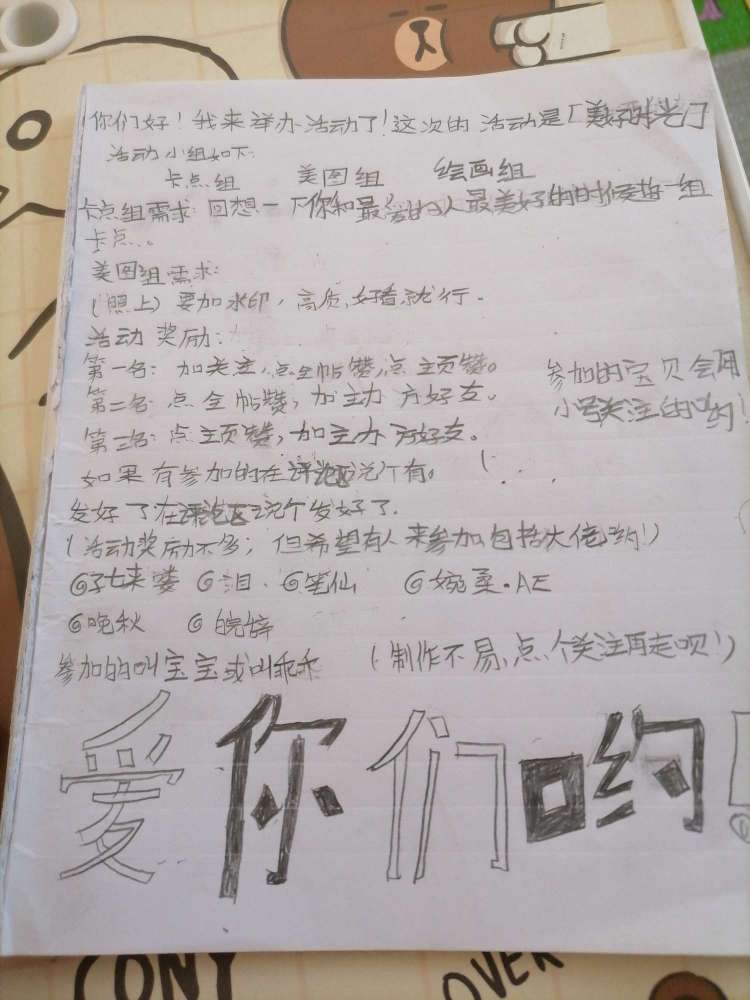 你们好！我来举办活动了！这次的活动是「美好时光」
活动小组如下：
卡点组 美图组 绘画组
卡点组需求：回想一下你和最爱的人最美好的时候趣一组
卡点...
美图组需求：
(照上)要加水印，高质，好看就行。
活动奖励：
第一名：加关注，点全帖赞，点主页赞。
第二名：点全帖赞，加主办方好友。
第三名：点主页赞，加主办方好友。
参加的宝贝会用
小号关注的哟！
如果有参加的在评论区说个有。
(...
发好了在评论区说个发好了.
(活动奖励不多；但希望有人来参加包括大佬哟！)
@子七来喽 @泪. @笙仙 @婉柔·AE
@晚秋 @皖辞
参加的叫宝宝或叫乖乖 (制作不易，点个关注再走呗！)
爱你们哟！
CONY
OVER